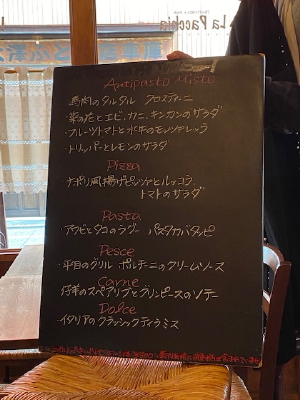 La Pacchia
Antipasto Misto
・馬肉のタルタル クロスティーニ
・菜の花とエビ、カニ、キンカンのサラダ
・フルーツトマトと水牛のモッツァレッラ
・トリッパーとレモンのサラダ
Pizza
ナポリ風揚げピッツァとルッコラ
トマトのサラダ
Pasta
アワビとタコのラグー パスタカバタッピ
Pesce
・平目のグリル ポルチーニのクリームソース
Carne
仔羊のスペアリブとグリンピースのソテー
Dolce
・イタリアのクラッシックティラミス